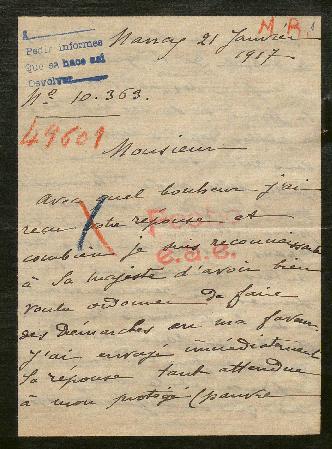 M. B.
Pedir informes
Que se hace así
Devolver
21 Janvier
1917
Nº 10.363.
49601
Monsieur
Avec quel bonheur j'ai
reçu votre réponse et
combien je suis reconnaissante
à Sa Majesté d'avoir bien
voulu ordonner de faire
des démarches en ma faveur.
J'ai envoyé immédiatement
la réponse tant attendue
à mon protégé (pauvre